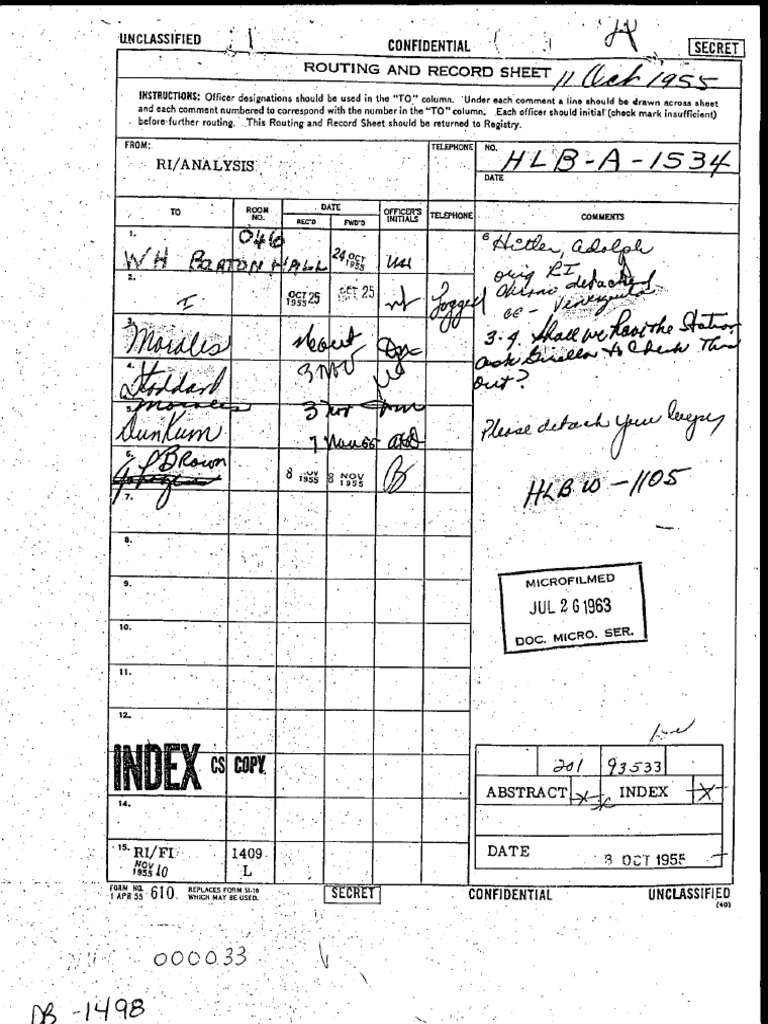 UNCLASSIFIED CONFIDENTIAL SECRET
ROUTING AND RECORD SHEET 11 Oct 1955
INSTRUCTIONS: Officer designations should be used in the "TO" column. Under each comment a line should be drawn across sheet
and each comment numbered to correspond with the number in the "TO" column. Each officer should initial (check mark insufficient)
before further routing. This Routing and Record Sheet should be returned to Registry.
FROM: TELEPHONE NO. HLB-A-1534
RI/ANALYSIS
DATE
TO ROOM NO. DATE OFFICER'S INITIALS TELEPHONE COMMENTS
REC'D FWD'D
1. 046 24 OCT 1955
WH
Hitler, Adolph
orig RI
2. I OCT 25 1955 OCT 25 Logged
detached
Venezuela
3. Morales
3-4. Shall we have the Station
ask to check this
out?
4. Stoddard 3 Nov
Morales
5. Dunkum 7 Nov 55
Please detach your
6. Brown 8 NOV 1955 8 NOV 1955 B
HLBW-1105
7.
8.
9.
MICROFILMED
JUL 26 1963
DOC. MICRO. SER.
10.
11.
12.
INDEX CS COPY
201 93533
ABSTRACT X INDEX X
14.
15. RI/FI 1409
NOV 10 1955 L
DATE OCT 1955
FORM NO. 610. REPLACES FORM 51-10
1 APR 55 WHICH MAY BE USED.
SECRET CONFIDENTIAL UNCLASSIFIED
(40)
000033
DB-1498